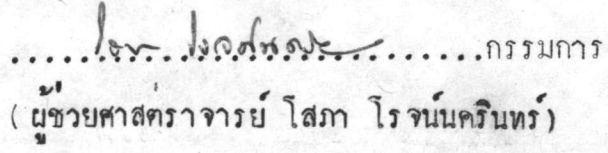 ..............................กรรมการ
(ผู้ช่วยศาสตราจารย์ โสภา โรจน์นครินทร์)